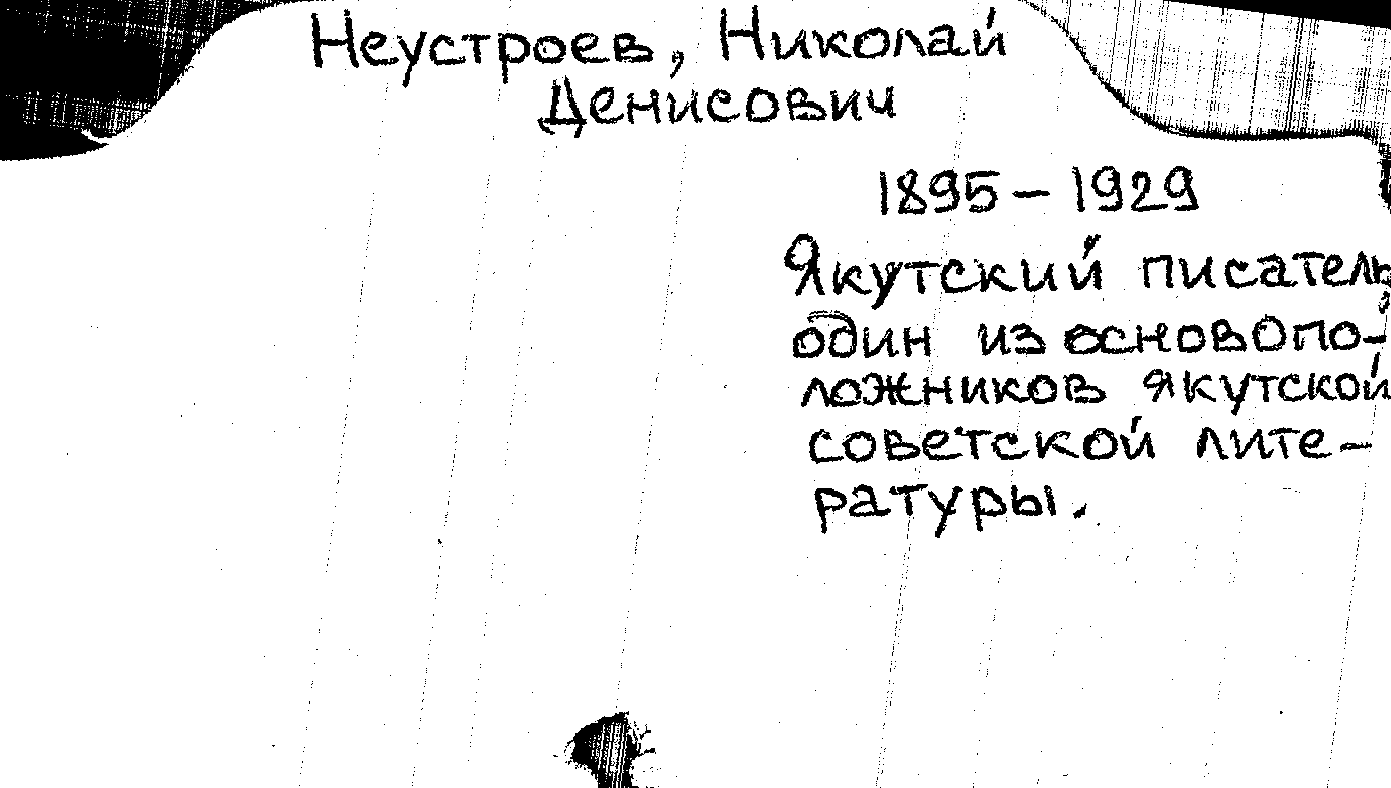 Неустроев, Николай
Денисович
1895 – 1929
Якутский писатель,
один из основопо-
ложников якутской
советской лите-
ратуры.